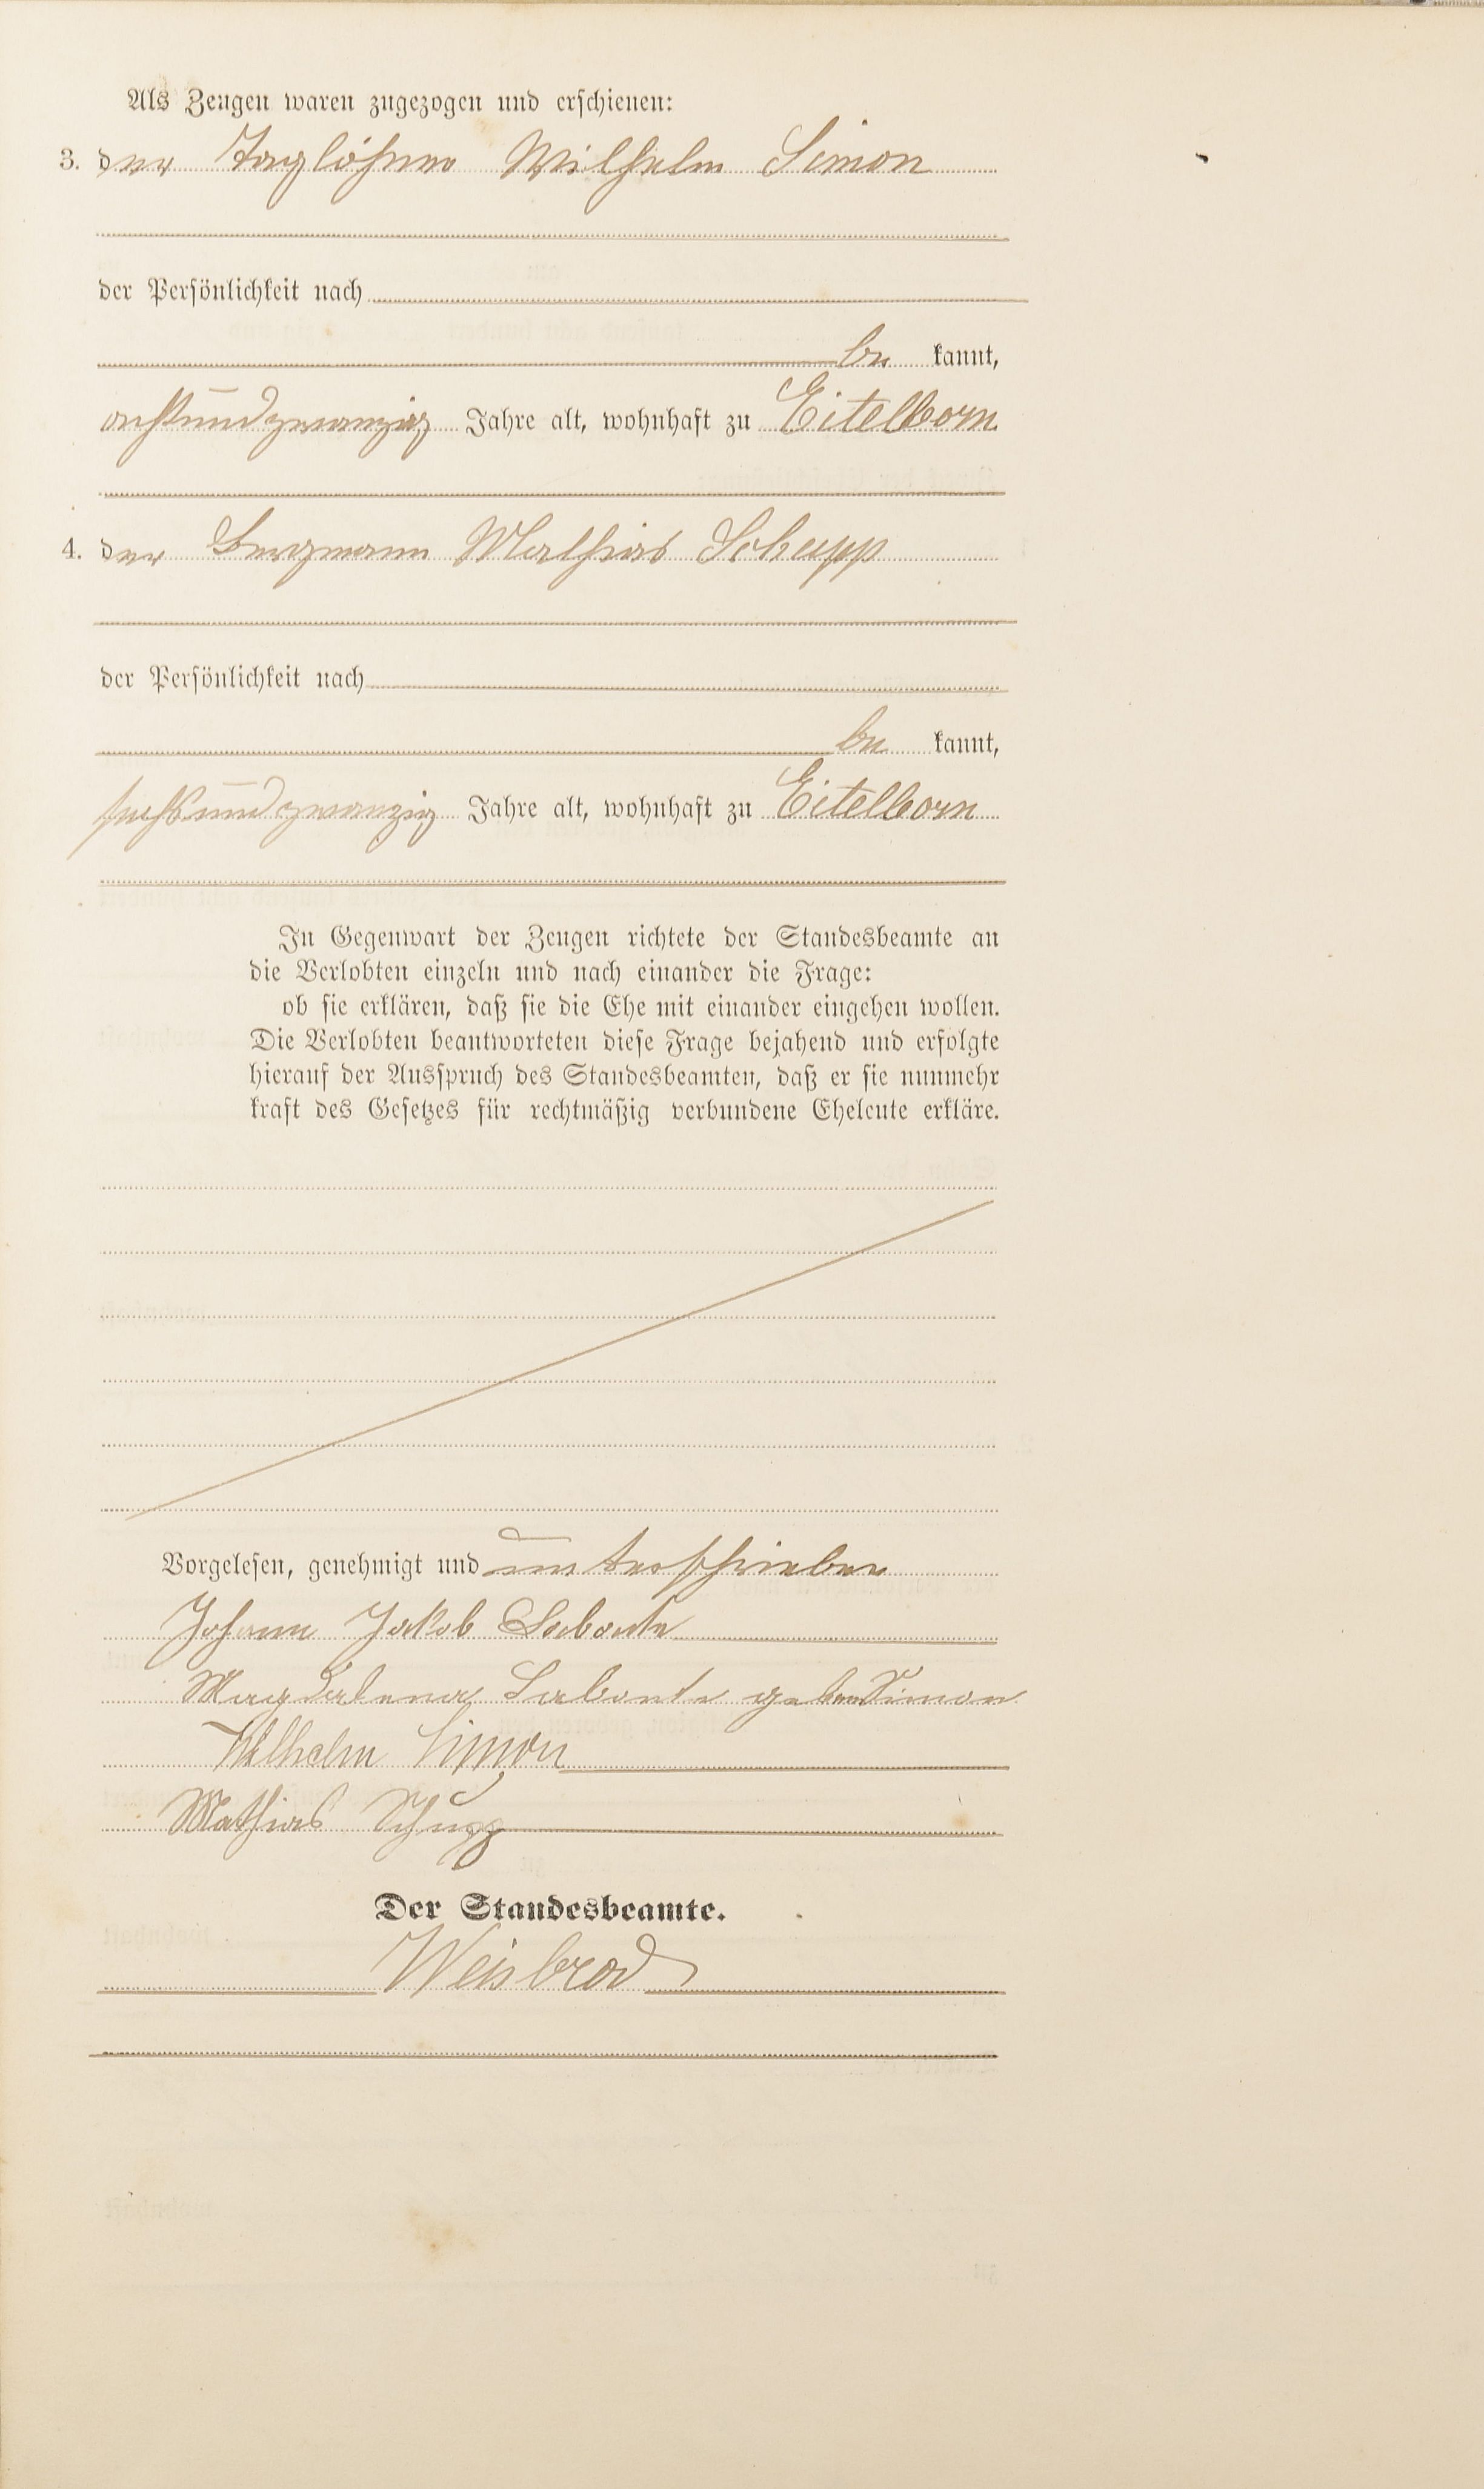 Als Zeugen waren zugezogen und erschienen:
3. der Taglöhner Wilhelm Simon
der Persönlichkeit nach
be kannt,
achtundzwanzig Jahre alt, wohnhaft zu Eitelborn
4. der Bergmann Mathias Schupp
der Persönlichkeit nach
be kannt,
sechsundzwanzig Jahre alt, wohnhaft zu Eitelborn
In Gegenwart der Zeugen richtete der Standesbeamte an
die Verlobten einzeln und nach einander die Frage:
ob sie erklären, daß sie die Ehe mit einander eingehen wollen.
Die Verlobten beantworteten diese Frage bejahend und erfolgte
hierauf der Ausspruch des Standesbeamten, daß er sie nunmehr
kraft des Gesetzes für rechtmäßig verbundene Eheleute erkläre.
Vorgelesen, genehmigt und unterschrieben
Johann Jakob Labonte
Magdalena Labonte geboren Simon
Wilhelm Simon
Mathias Schupp
Der Standesbeamte.
Weisbrod